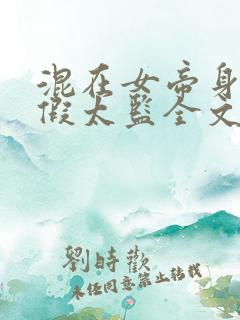 混在女帝身
假太监全文
劉時歡
未经同意禁止转载